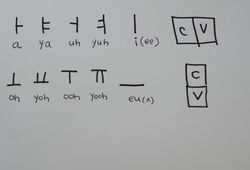 ㅏ ㅑ ㅓ ㅕ ㅣ C V
a ya uh yuh i(ee)
ㅗ ㅛ ㅜ ㅠ ㅡ C
oh yoh ooh yooh eu(^) V